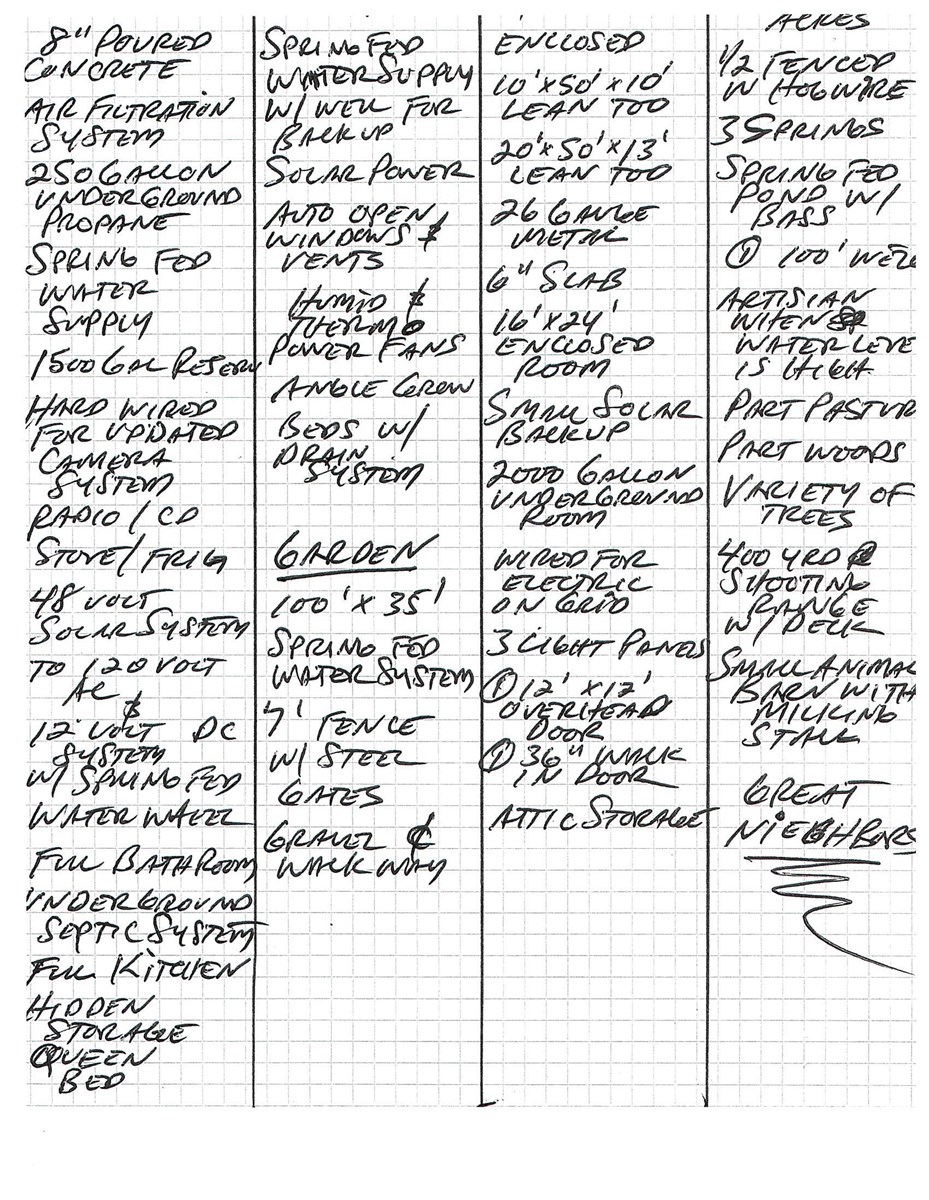 8" POURED
CONCRETE
AIR FILTRATION
SYSTEM
250 GALLON
UNDERGROUND
PROPANE
SPRING FED
WATER
SUPPLY
1500 GAL RESERV
HARD WIRED
FOR UPDATED
CAMERA
SYSTEM
RADIO / CD
STOVE / FRIG
48 VOLT
SOLAR SYSTEM
TO 120 VOLT
AC &
12 VOLT DC
SYSTEM
W/ SPRING FED
WATER WHEEL
FULL BATHROOM
UNDERGROUND
SEPTIC SYSTEM
FULL KITCHEN
HIDDEN
STORAGE
QUEEN
BED
SPRING FED
WATER SUPPLY
W/ WELL FOR
BACKUP
SOLAR POWER
AUTO OPEN
WINDOWS &
VENTS
HUMID &
THERMO
POWER FANS
ANGLE GROW
BEDS W/
DRAIN
SYSTEM
GARDEN
100' X 35'
SPRING FED
WATER SYSTEM
7' FENCE
W/ STEEL
GATES
GRAVEL &
WALK WAY
ENCLOSED
10' X 50' X 10'
LEAN TOO
20' X 50' X 13'
LEAN TOO
26 GAUGE
METAL
6" SLAB
16' X 24'
ENCLOSED
ROOM
SMALL SOLAR
BACKUP
2000 GALLON
UNDERGROUND
ROOM
WIRED FOR
ELECTRIC
ON GRID
3 LIGHT PANELS
① 12' X 12'
OVERHEAD
DOOR
① 36" WALK
IN DOOR
ATTIC STORAGE
ACRES
1/2 FENCED
W HOGWIRE
3 SPRINGS
SPRING FED
POND W/
BASS
① 100' WELL
ARTISIAN
WHEN
WATER LEVE
IS HIGH
PART PASTUR
PART WOODS
VARIETY OF
TREES
400 YRD
SHOOTING
RANGE
W/ DECK
SMALL ANIMAL
BARN WITH
MILKING
STALL
GREAT
NIEGHBORS